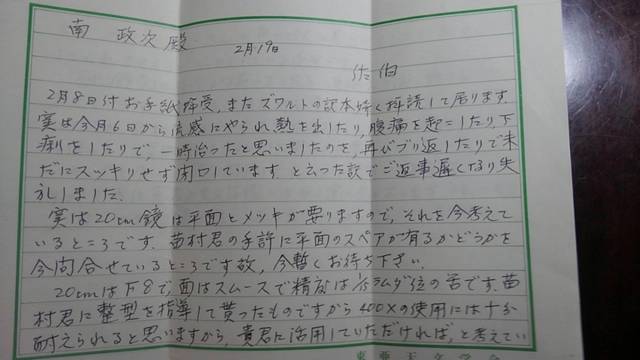 南 政次 殿
2月19日
佐伯
2月8日付お手紙拝受、またズワルトの訳本好く拝読して居ります.
実は今月6日から流感にやられ熱を出したり,腹痛を起こしたり下
痢をしたりで,一時治ったと思いましたのを,再びブリ返したりで未
だにスッキリせず閉口しています と云った訳でご返事遅くなり失
礼しました.
実は20cm鏡は平面とメッキが要りますので,それを今考えて
いるところです.苗村君の手許に平面のスペアが有るかどうかを
今問合せているところです故,今暫くお待ち下さい.
20cmはF8で,面はスムースで精度は ラムダ位の筈です.苗
村君に整型を指導して貰ったものですから400×の使用には十分
耐えられると思いますから,貴君に活用していただければ,と考えてい
東亜天文学会